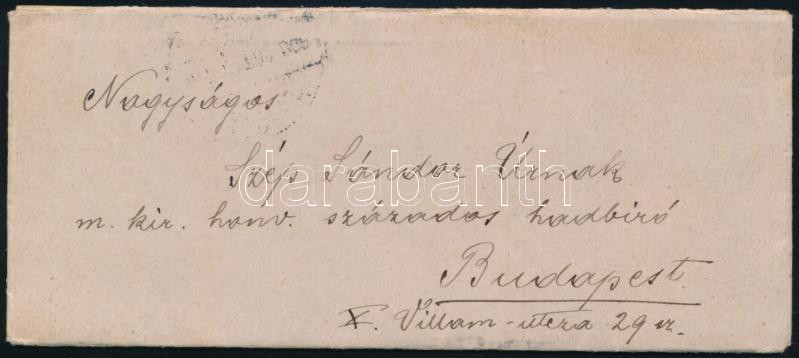 Nagyságos
Szép Sándor Úrnak
darabanth
m. kir. honv. százados hadbiró
Budapest
X. Villam-utcza 29 sz.